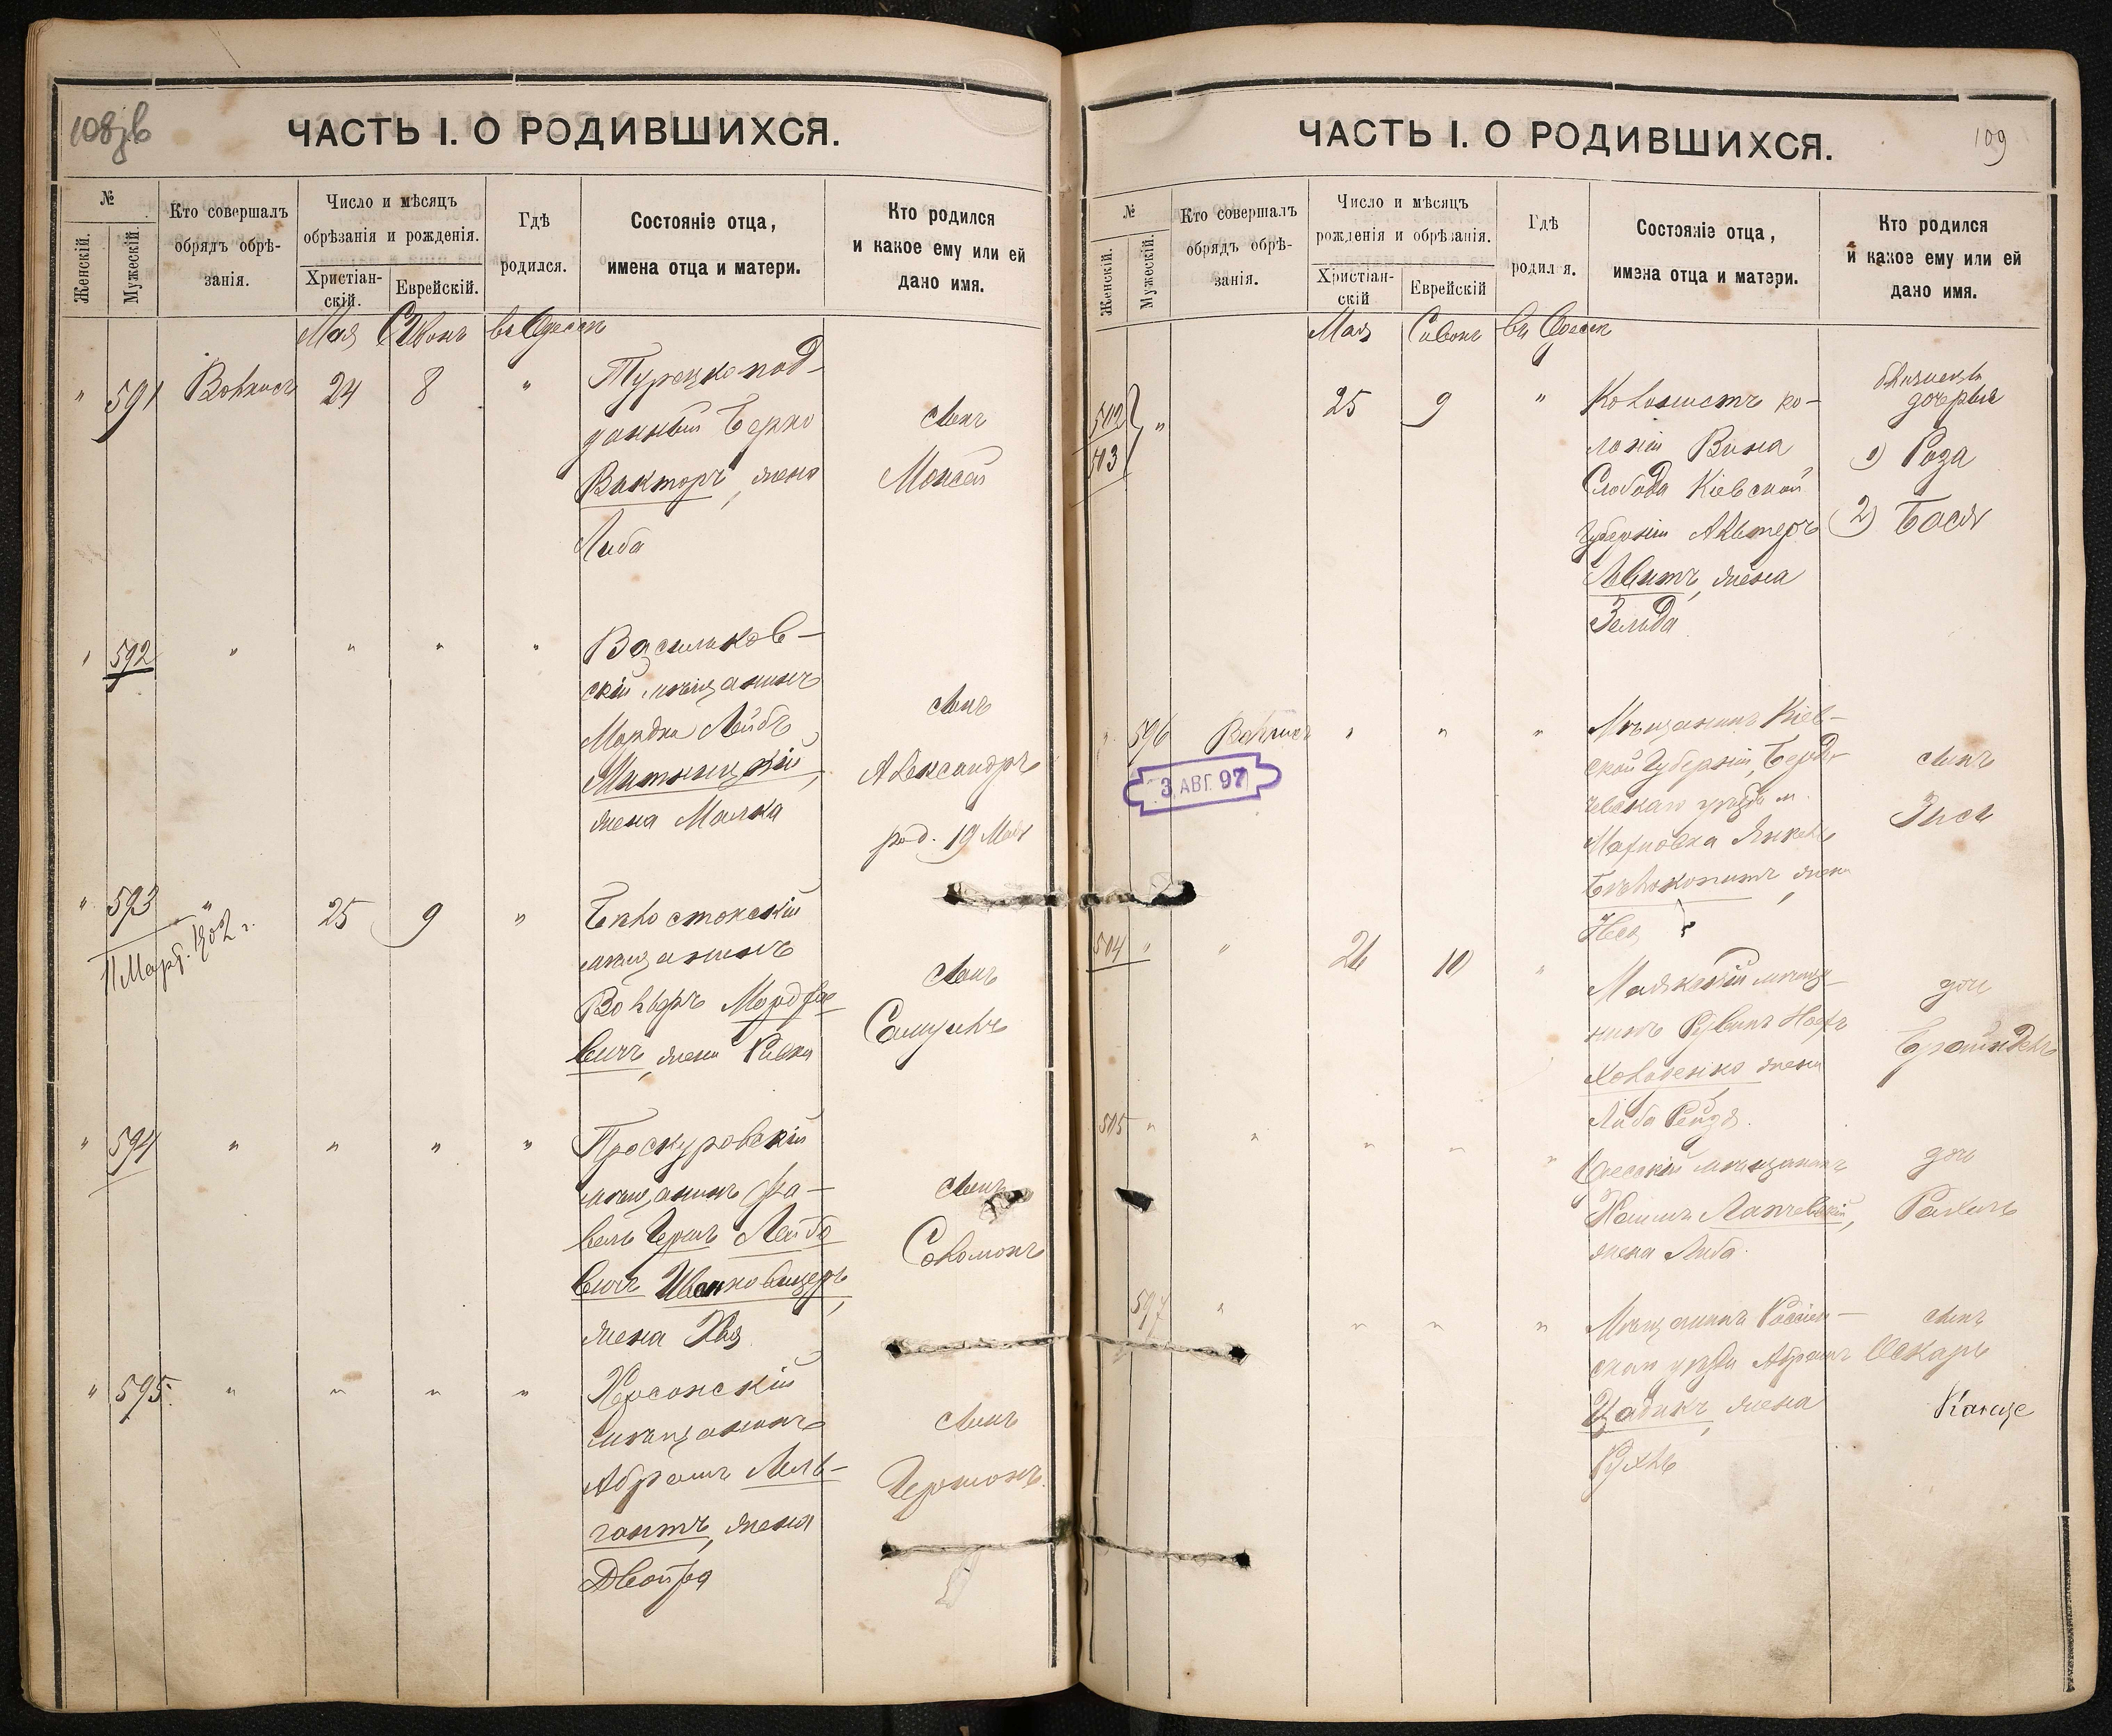 108зв
ЧАСТЬ I. О РОДИВШИХСЯ.
№
Женскій.
Мужескій.
Кто совершалъ
обрядъ обрѣ-
занія.
Число и мѣсяцъ
обрѣзанія и рожденія.
Христіан-
скій.
Еврейскій.
Гдѣ
родился.
Состояніе отца,
имена отца и матери.
Кто родился
и какое ему или ей
дано имя.
Мая Сивонъ въ Одессѣ
" 591 24 8 " Турецкопод-
данный Берко
Викторъ, жена
Либа
сынъ
Моисей
" 592 " " " " Васильков-
скій мѣщанинъ
Мордко Лейбъ
жена Малка
сынъ
Александръ
род. 19 Мая
" 593 " 25 9 " Бѣлостокскій
11 Март. 1902 г.
мѣщанинъ
Вольфъ Мордхо-
вичъ, жена Ривка
сынъ
Самуилъ
" 594 " " " " Проскуровскій
мѣщанинъ Фа-
вель Гершъ Лейбо
вичъ
жена Хая
сынъ
Соломонъ
" 595. " " " " Херсонскій
мѣщанинъ
Абрамъ Мель-
гантъ, жена
Двойра
сынъ
Гершонъ
109
ЧАСТЬ I. О РОДИВШИХСЯ.
№
Женскій.
Мужескій.
Кто совершалъ
обрядъ обрѣ-
занія.
Число и мѣсяцъ
рожденія и обрѣзанія.
Христіан-
скій
Еврейскій
Гдѣ
родился.
Состояніе отца,
имена отца и матери.
Кто родился
и какое ему или ей
дано имя.
Мая Сивонъ въ Одессѣ
502
503
" 25 9 " Колонистъ ко-
лоніи
Слобода Кіевской
губерніи Альтеръ
Левитъ, жена
Зельда
близнецы
дочери
1) Роза
2) Бася
" 596 " " " Мѣщанинъ Кіев-
ской Губерніи, Берди-
чевскаго уѣзда м.
Махновка Янкель
Бѣлокопытъ, жена
Неся
сынъ
Зись
3 АВГ. 97
504 " " 26 10 " Маякскій мѣща-
нинъ Рувинъ Ноехъ
Ховаденко жена
Либа Рейзя.
дочь
Брайндель
505 " " " " " Одесскій мѣщанинъ
Хаимъ
жена Либа.
дочь
Рахиль
597 " " " " Мѣщанинъ Россіен-
скаго уѣзда Абрамъ
Цадикъ, жена
Рухль
сынъ
Оскаръ